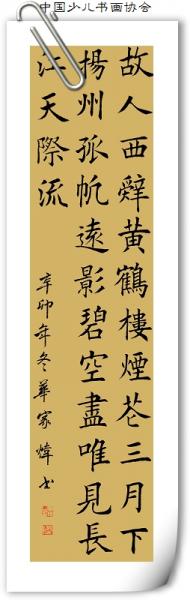 中国少儿书画协会
故人西辤黄鶴樓煙苍三月下
揚州孤帆遠影碧空盡唯見長
江天際流
辛卯年冬華家煒书